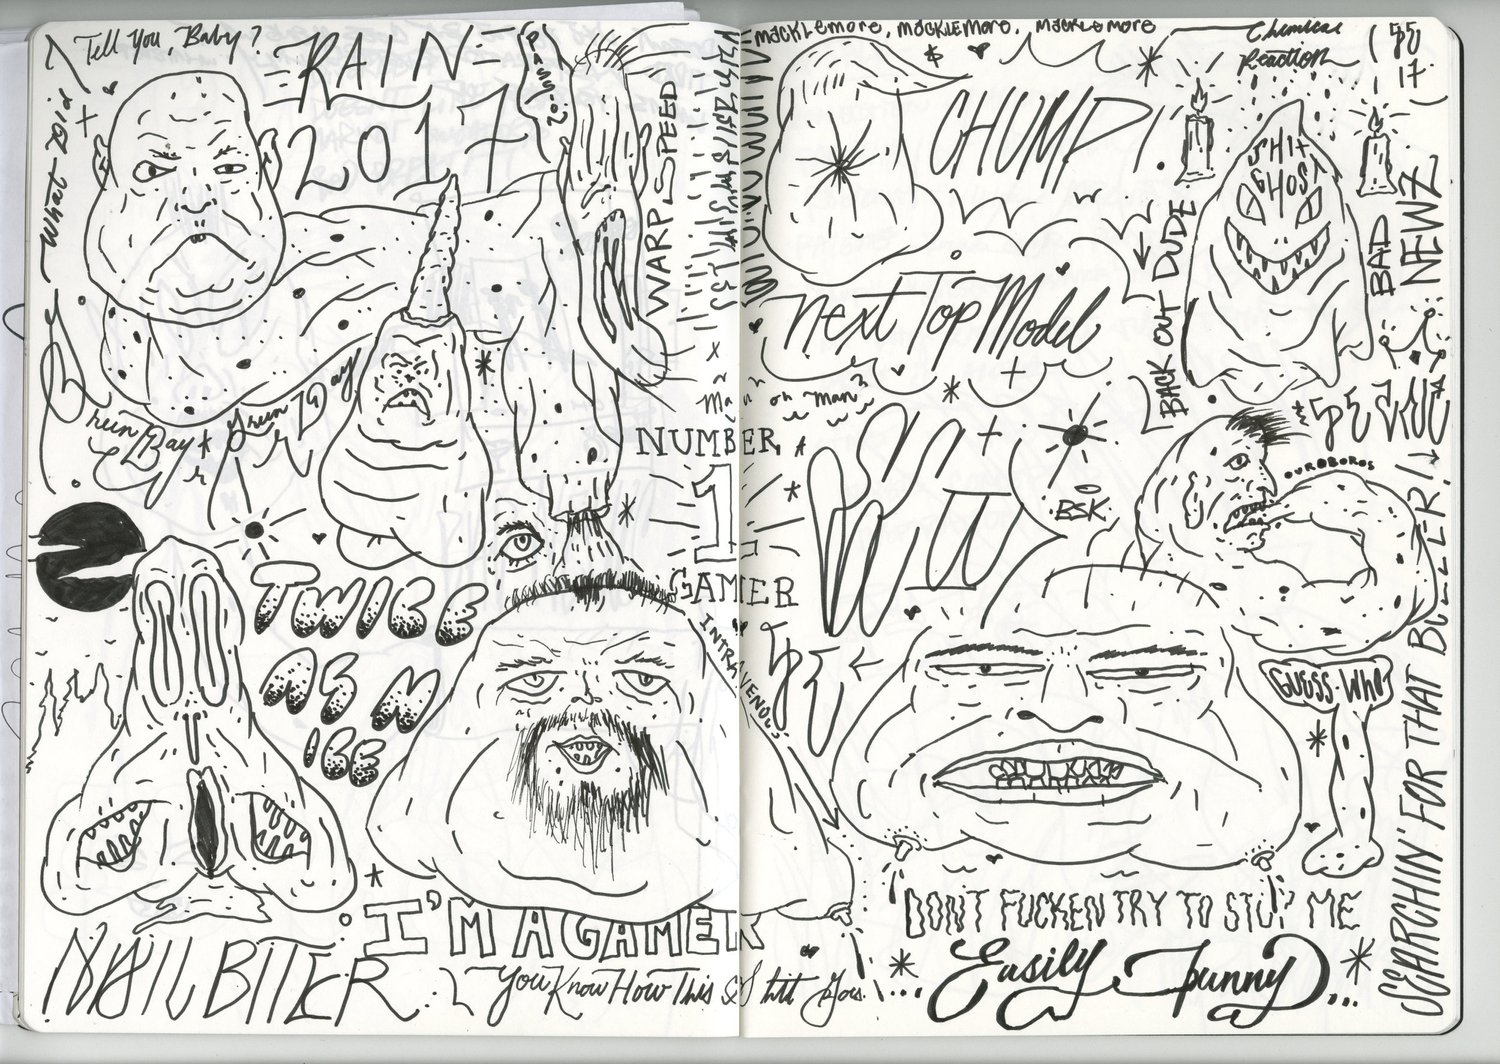 What Did I
Tell You, Baby?
RAIN
2017
PASS-2
WARP SPEED
MACKLEMORE, MACKLEMORE, MACKLEMORE
Chemical
Reaction
CHUMP!
SHIT
GHOST
BAD
NEWZ
BACK OUT DUDE
Next Top Model
Man oh Man
NUMBER
1
GAMER
INTRAVENOUS
BSK
OUROBOROS
TWICE
AS N
ICE
GUESS WHO?
SEARCHIN' FOR THAT BULLER!
I'M A GAMER
NAIL BITER
You Know How This Shit Goes...
DON'T FUCKEN TRY TO STOP ME
Easily Funny...